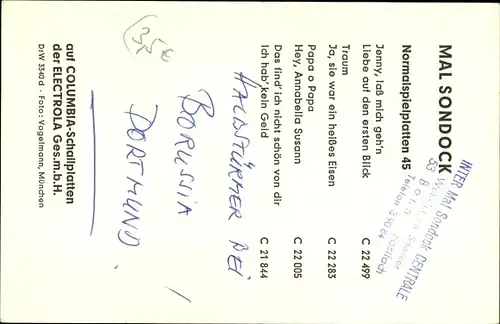 MAL SONDOCK
Normalspielplatten 45
Jenny, laß mich geh'n
Liebe auf den ersten Blick C 22 499
Traum
Ja, sie war ein heißes Eisen C 22 283
Papa o Papa
Hey, Annabella Susann C 22 005
Das find' ich nicht schön von dir
Ich hab' kein Geld C 21 844
HALBSTÜRMER BEI
BORUSSIA
DORTMUND!
auf COLUMBIA-Schallplatten
der ELECTROLA Ges.m.b.H.
DrW 3540 d · Foto: Vogelmann, München
INTER Mal Sondock CENTRALE
53 Bonn
Postfach
Telefon
3,5